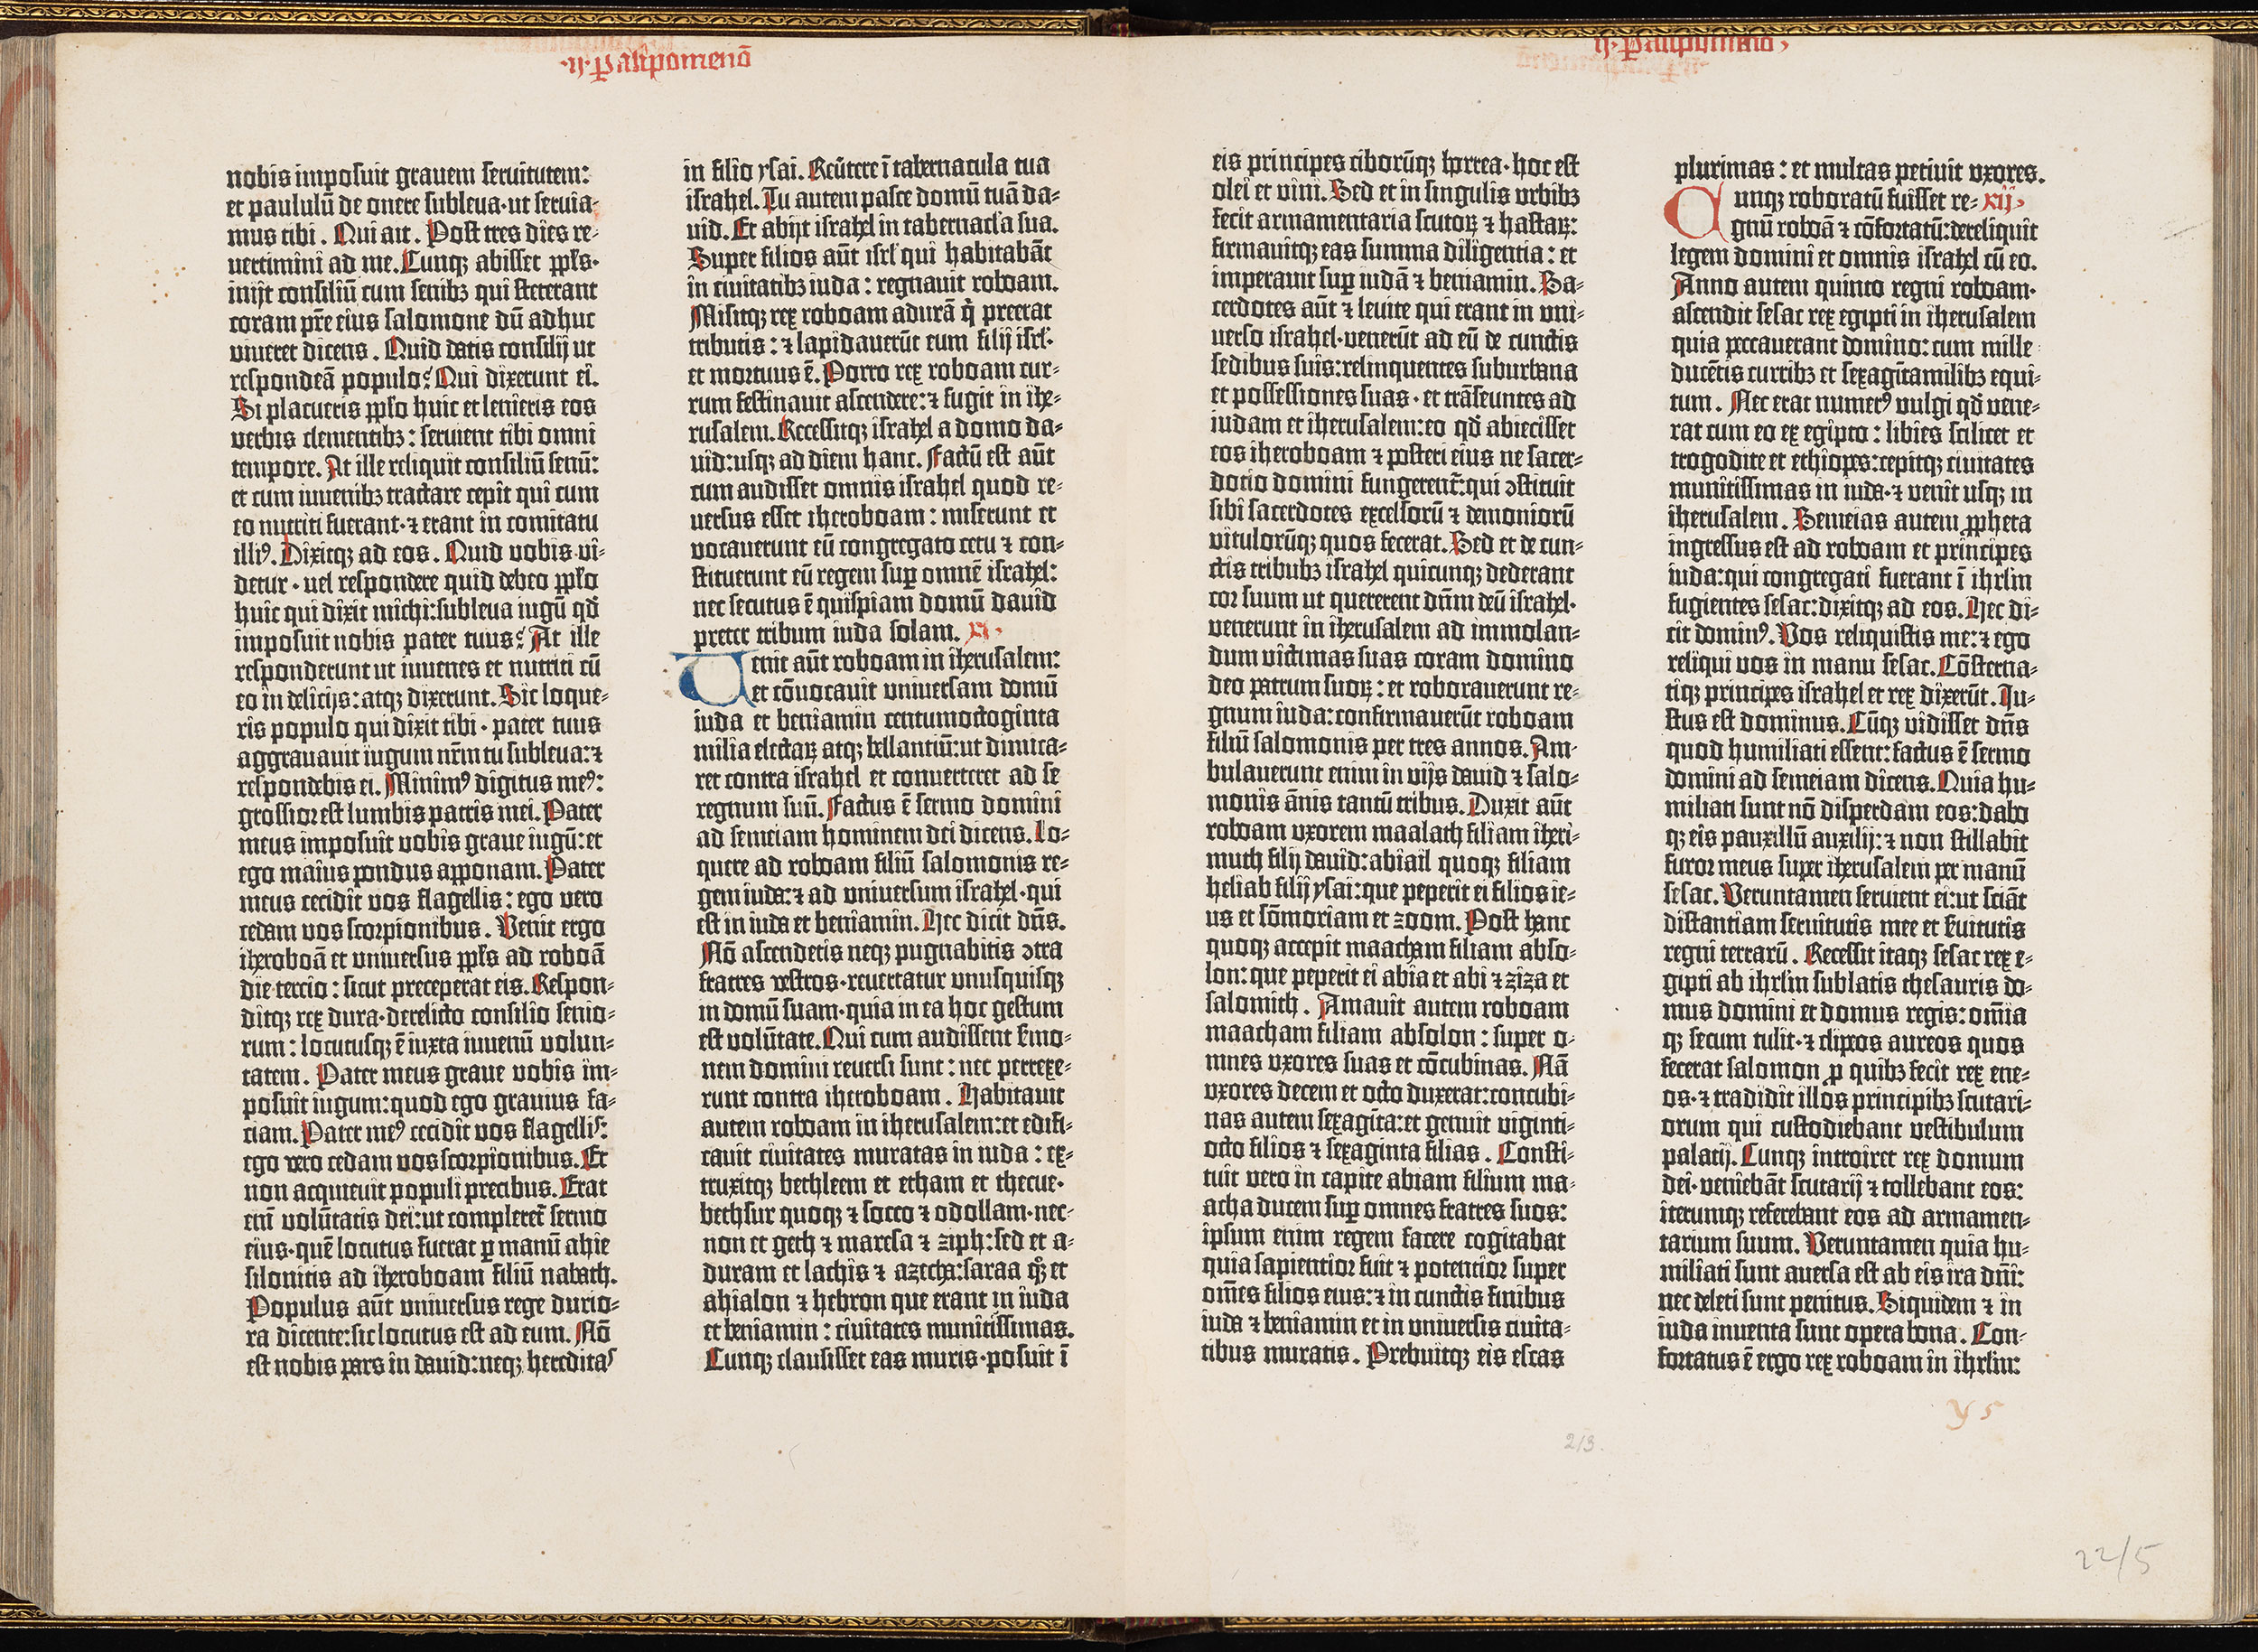 ·ij·Paľipomenō
nobis imposuit grauem seruitutem:
et paululū de onere subleua·ut seruia-
mus tibi. Qui ait. Post tres dies re-
uertimini ad me. Cunqꝫ abisset ppľs·
inijt consiliū cum senibꝫ qui steterant
coram pr̄e eius salomone dū adhuc
viueret dicens. Quid datis consilij ut
respondeā populo? Qui dixerunt ei.
Si placueris ppľo huic et lenieris eos
verbis clementibꝫ: seruient tibi omni
tempore. At ille reliquit consiliū senū:
et cum iuuenibꝫ tractare cepit qui cum
eo nutriti fuerant·⁊ erant in comitatu
illiꝰ. Dixitqꝫ ad eos. Quid vobis vi-
detur· uel respondere quid debeo ppľo
huic qui dixit michi:subleua iugū qđ
imposuit nobis pater tuus? At ille
responderunt ut iuuenes et nutriti cū
eo in delicijs:atqꝫ dixerunt. Sic loque-
ris populo qui dixit tibi· pater tuus
aggrauauit iugum nr̄m tu subleua:⁊
respondebis ei. Minimꝰ digitus meꝰ:
grossior est lumbis patris mei. Pater
meus imposuit vobis graue iugū:et
ego maius pondus apponam. Pater
meus cecidit vos flagellis: ego vero
cedam vos scorpionibus. Venit ergo
iheroboā et uniuersus ppľs ad roboā
die tercio: sicut preceperat eis. Respon-
ditqꝫ rex dura·derelicto consilio senio-
rum: locutusqꝫ ē iuxta iuuenū volun-
tatem. Pater meus graue vobis im-
posuit iugum:quod ego grauius fa-
ciam. Pater meꝰ cecidit vos flagellis:
ego vero cedam vos scorpionibus. Et
non acquieuit populi precibus. Erat
enī volūtatis dei:ut compleret̄ sermo
eius·quē locutus fuerat ꝑ manū ahie
silonitis ad iheroboam filiū nabath.
Populus aūt vniuersus rege durio-
ra dicente:sic locutus est ad eum. Nō
est nobis pars in dauid:neqꝫ hereditas
in filio ysai. Reūtere ī tabernacula tua
israhel. Tu autem pasce domū tuā da-
uid. Et abijt israhel in tabernacľa sua.
Super filios aūt isrľ qui habitabāt
in ciuitatibꝫ iuda: regnauit roboam.
Misitqꝫ rex roboam adurā q̇ preerat
tributis: ⁊ lapidauerūt eum filij isrľ·
et mortuus ē. Porro rex roboam cur-
rum festinauit ascendere:⁊ fugit in ihe-
rusalem. Recessitqꝫ israhel a domo da-
uid:usqꝫ ad diem hanc. Factū est aūt
cum audisset omnis israhel quod re-
uersus esset iheroboam: miserunt et
vocauerunt eū congregato cetu ⁊ con-
stituerunt eū regem suꝑ omnē israhel:
nec secutus ē quispiam domū dauid
preter tribum iuda solam. xi·
Uenit aūt roboam in iherusalem:
et cōuocauit vniuersam domū
iuda et beniamin centumoctoginta
milia electaꝝ atqꝫ bellantiū:ut dimica-
ret contra israhel et conuerteret ad se
regnum suū. Factus ē sermo domini
ad semeiam hominem dei dicens. Lo-
quere ad roboam filiū salomonis re-
gem iuda:⁊ ad vniuersum israhel·qui
est in iuda et beniamin. Hec dicit dn̄s.
Nō ascendetis neqꝫ pugnabitis ɔtra
fratres vestros·reuertatur vnusquisqꝫ
in domū suam·quia in ea hoc gestum
est volūtate. Qui cum audissent ẜmo-
nem domini reuersi sunt: nec perrexe-
runt contra iheroboam. Habitauit
autem roboam in iherusalem:et edifi-
cauit ciuitates muratas in iuda: ex-
truxitqꝫ bethleem et etham et thecue·
bethsur quoqꝫ ⁊ socco ⁊ odollam·nec-
non et geth ⁊ maresa ⁊ ziph:sed et a-
duram et lachis ⁊ azecha:saraa qͦꝫ et
ahialon ⁊ hebron que erant in iuda
et beniamin: ciuitates munitissimas.
Cunqꝫ clausisset eas muris·posuit ī
eis principes ciborūqꝫ horrea·hoc est
olei et vini. Sed et in singulis vrbibꝫ
fecit armamentaria scutoꝝ ⁊ hastaꝝ:
firmauitqꝫ eas summa diligentia: et
imperauit suꝑ iudā ⁊ beniamin. Sa-
cerdotes aūt ⁊ leuite qui erant in vni-
uerso israhel·venerūt ad eū de cunctis
sedibus suis:relinquentes suburbana
et possessiones suas· et trāseuntes ad
iudam et iherusalem:eo qđ abiecisset
eos iheroboam ⁊ posteri eius ne sacer-
dotio domini fungerent̄:qui ɔstituit
sibi sacerdotes excelsorū ⁊ demoniorū
vitulorūqꝫ quos fecerat. Sed et de cun-
ctis tribubꝫ israhel quicunqꝫ dederant
cor suum ut quererent dn̄m deū israhel·
venerunt in iherusalem ad immolan-
dum victimas suas coram domino
deo patrum suoꝝ: et roborauerunt re-
gnum iuda:confirmauerūt roboam
filiū salomonis per tres annos. Am-
bulauerunt enim in vijs dauid ⁊ salo-
monis ānis tantū tribus. Duxit aūt
roboam vxorem maalath filiam iheri-
muth filij dauid:abiail quoqꝫ filiam
heliab filij ysai:que peperit ei filios ie-
us et sōmoriam et zoom. Post hanc
quoqꝫ accepit maacham filiam abso-
lon:que peperit ei abia et abi ⁊ ziza et
salomith. Amauit autem roboam
maacham filiam absolon: super o-
mnes vxores suas et cōcubinas. Nā
vxores decem et octo duxerat:concubi-
nas autem sexagīta:et genuit viginti-
octo filios ⁊ sexaginta filias. Consti-
tuit vero in capite abiam filium ma-
acha ducem suꝑ omnes fratres suos:
ipsum enim regem facere cogitabat
quia sapientior fuit ⁊ potentior super
om̄es filios eius:⁊ in cunctis finibus
iuda ⁊ beniamin et in vniuersis ciuita-
tibus muratis. Prebuitqꝫ eis escas
plurimas: et multas petiuit vxores.
Cunqꝫ roboratū fuisset re- xij·
gnū roboā ⁊ cōfortatū:dereliquit
legem domini et omnis israhel cū eo.
Anno autem quinto regni roboam·
ascendit sesac rex egipti in iherusalem
quia peccauerant domino: cum mille
ducētis curribꝫ et sexagītamilibꝫ equi-
tum. Nec erat numerꝰ vulgi qđ vene-
rat cum eo ex egipto: libies scilicet et
trogodite et ethiopes:cepitqꝫ ciuitates
munitissimas in iuda·⁊ venit usqꝫ in
iherusalem. Semeias autem ꝓpheta
ingressus est ad roboam et principes
iuda:qui congregati fuerant ī ihrľm
fugientes sesac:dixitqꝫ ad eos. Hec di-
cit dominꝰ. Vos reliquistis me:⁊ ego
reliqui vos in manu sesac. Cōsterna-
tiqꝫ principes israhel et rex dixerūt. Iu-
stus est dominus. Cūqꝫ vidisset dn̄s
quod humiliati essent:factus ē sermo
domini ad semeiam dicens. Quia hu-
miliati sunt nō disperdam eos:dabo
qꝫ eis pauxillū auxilij:⁊ non stillabit
furor meus super iherusalem per manū
sesac. Veruntamen seruient ei:ut sciāt
distantiam seruitutis mee et ẜuitutis
regni terrarū. Recessit itaqꝫ sesac rex e-
gipti ab ihrľm sublatis thesauris do-
mus domini et domus regis:om̄ia
qꝫ secum tulit·⁊ clipeos aureos quos
fecerat salomon ꝓ quibꝫ fecit rex ene-
os·⁊ tradidit illos principibꝫ scutari-
orum qui custodiebant vestibulum
palatij. Cunqꝫ introiret rex domum
dei·veniebāt scutarij ⁊ tollebant eos:
iterumqꝫ referebant eos ad armamen-
tarium suum. Veruntamen quia hu-
miliati sunt auersa est ab eis ira dn̄i:
nec deleti sunt penitus. Siquidem ⁊ in
iuda inuenta sunt opera bona. Con-
fortatus ē ergo rex roboam in ihrľm:
y 5
213.
22/5